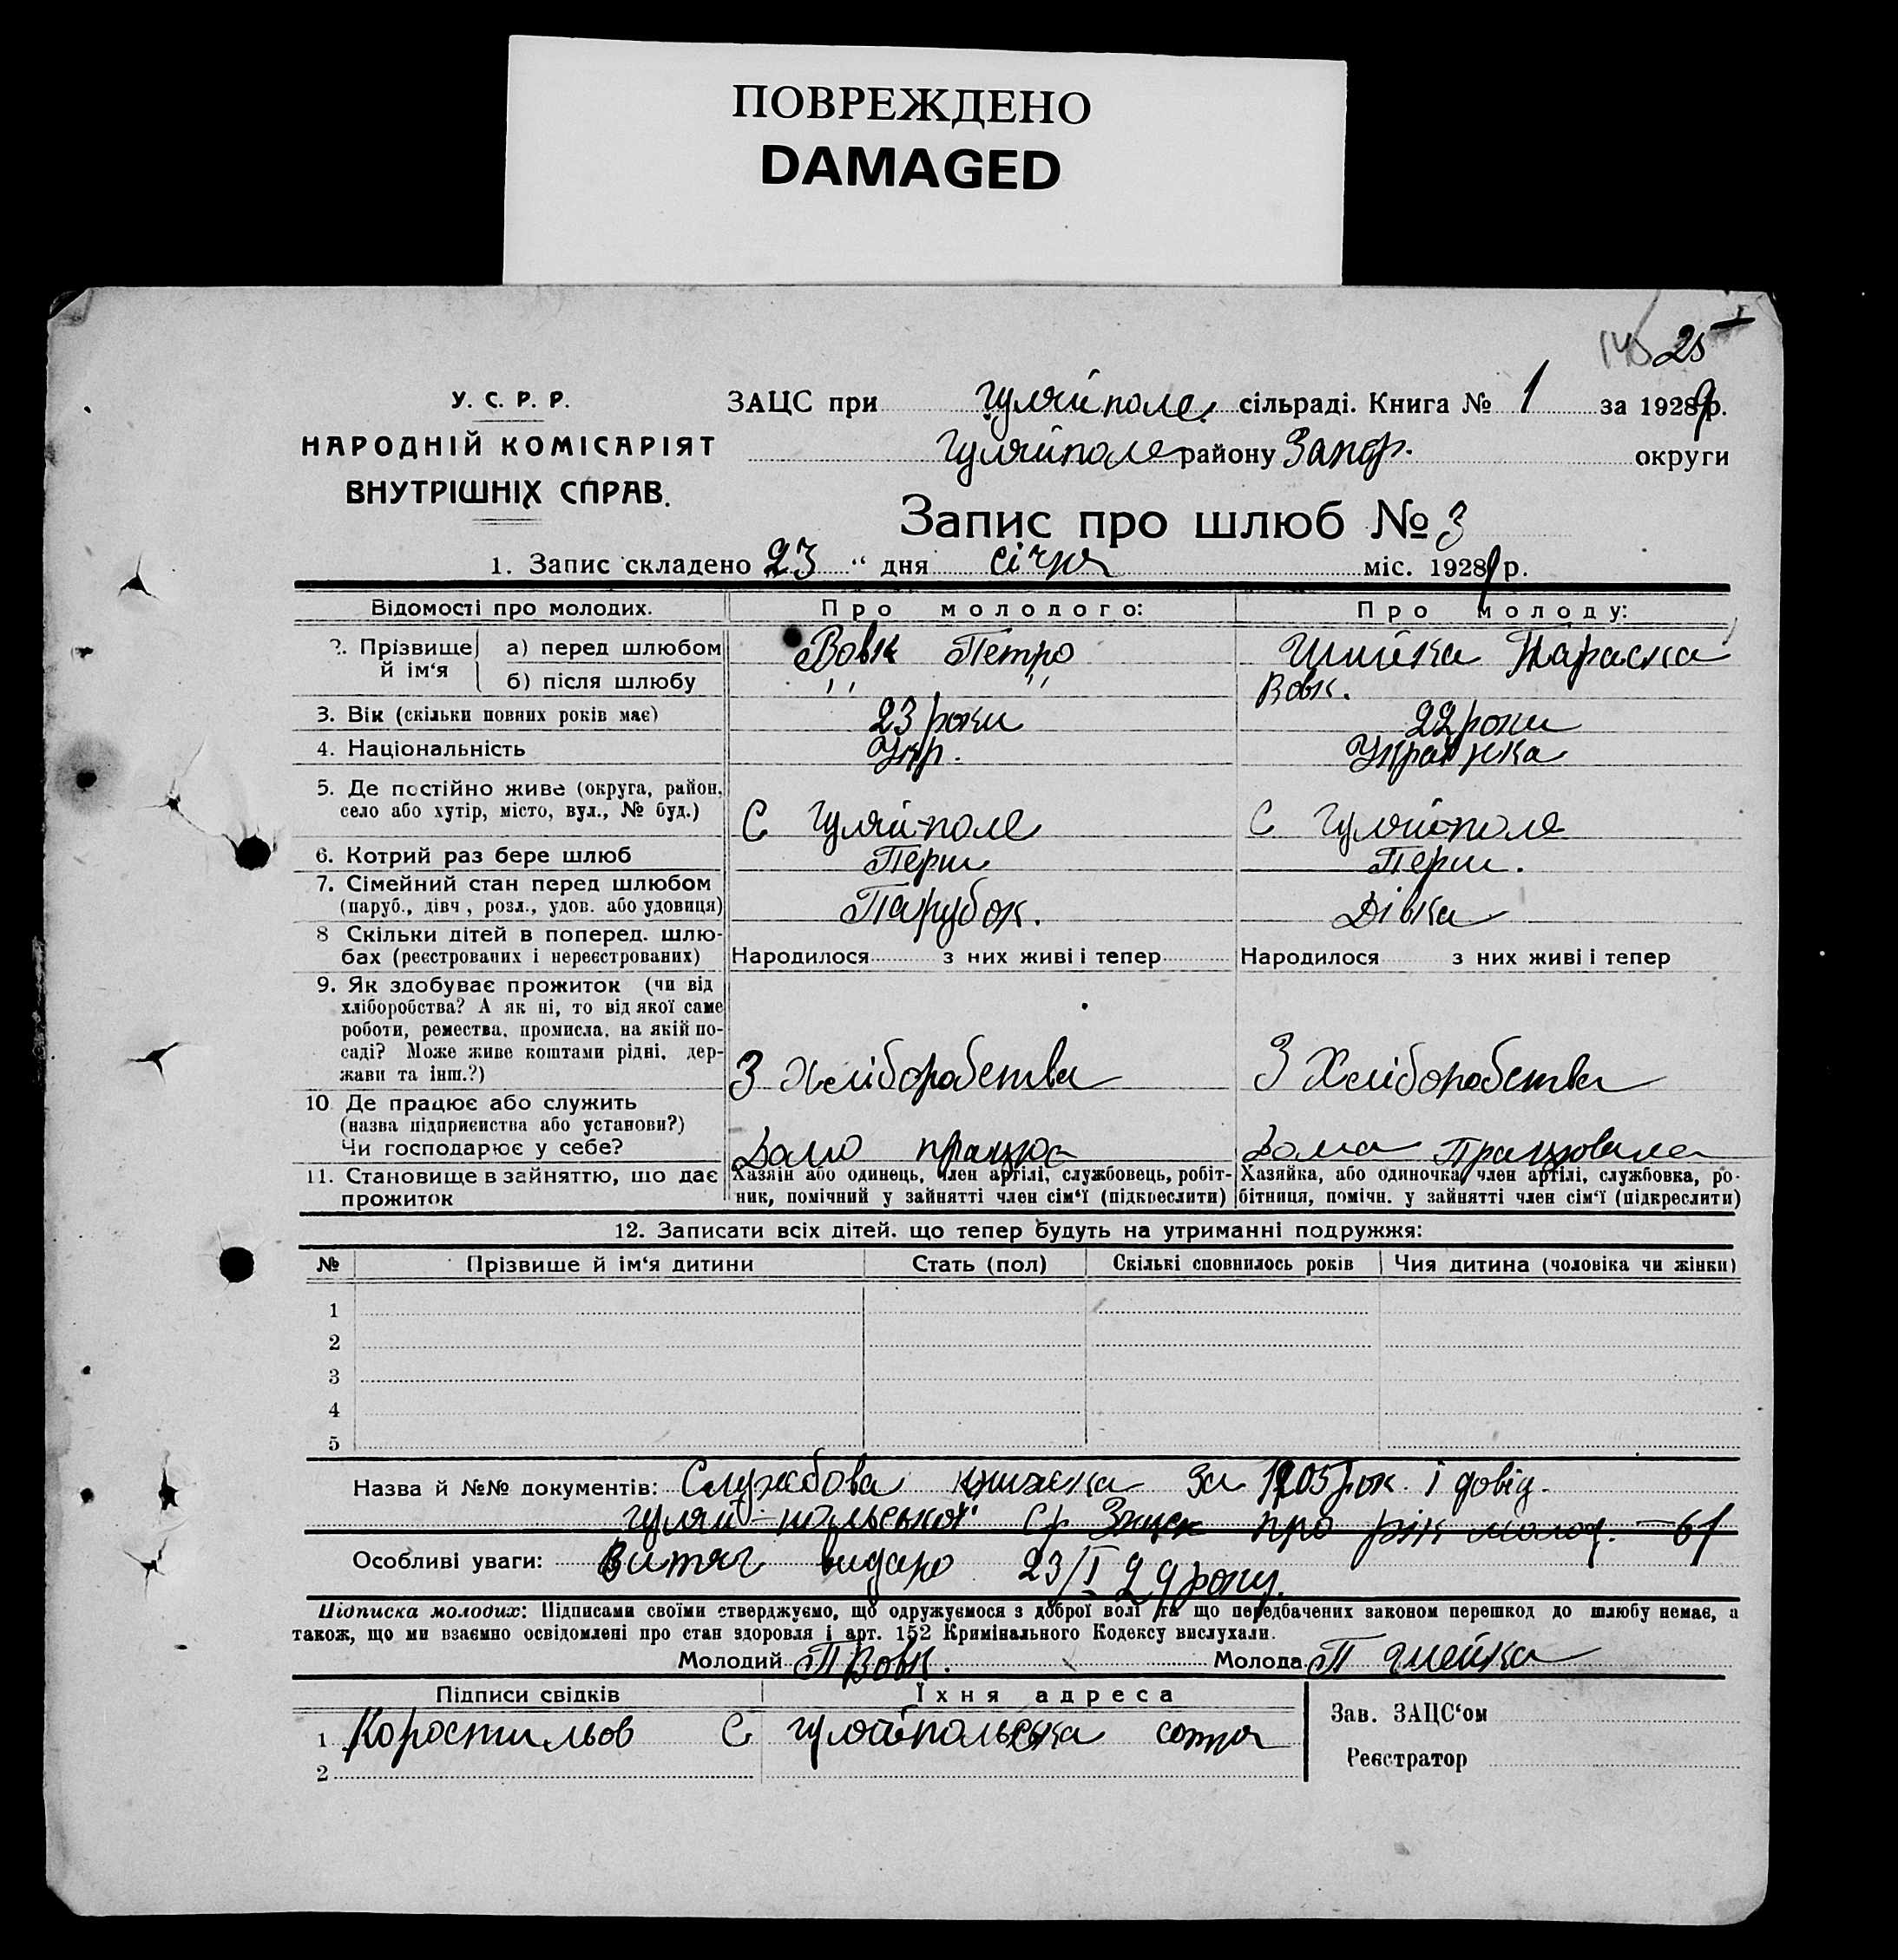 ПОВРЕЖДЕНО
DAMAGED
25
У. С. Р. Р.
НАРОДНІЙ КОМІСАРІЯТ
ВНУТРІШНІХ СПРАВ.
ЗАЦС при Гуляйполе. сільраді. Книга № 1 за 1929 р.
Гуляйполе району Запор. округи
Запис про шлюб № 3
1. Запис складено 23 “ дня січня міс. 1929 р.
Відомості про молодих. Про молодого: Про молоду:
2. Прізвище й ім‘я а) перед шлюбом Вовк Петро Параска
б) після шлюбу ,, ,, Вовк.
3. Вік (скільки повних років має) 23 роки 22 роки
4. Національність Укр. Українка
5. Де постійно живе (округа, район,
село або хутір, місто, вул., № буд.) С Гуляй-поле С Гуляй-поле
6. Котрий раз бере шлюб Перш Перш.
7. Сімейний стан перед шлюбом
(паруб., дівч., розл., удов. або удовиця) Парубок. Дівка
8 Скільки дітей в поперед. шлю-
бах (реєстрованих і нереєстрованих) Народилося з них живі і тепер Народилося з них живі і тепер
9. Як здобуває прожиток (чи від
хліборобства? А як ні, то від якої саме
роботи, ремества, промисла, на якій по-
саді? Може живе коштами рідні, дер-
жави та інш.?) З Хліборобства З Хліборобства
10. Де працює або служить
(назва підприємства або установи?)
Чи господарює у себе? Дома працює Дома Працювала
11. Становище в зайняттю, що дає прожиток
Хазяїн або одинець, член артілі, службовець, робіт-
ник, помічний у зайнятті член сім‘ї (підкреслити)
Хазяйка, або одиночка, член артілі, службовка, ро-
бітниця, помічн. у зайнятті член сім‘ї (підкреслити)
12. Записати всіх дітей. що тепер будуть на утриманні подружжя:
№ Прізвище й ім‘я дитини Стать (пол) Скількі сповнилось років Чия дитина (чоловіка чи жінки)
1
2
3
4
5
Назва й №№ документів: Службова книжка за 1905 рок і довід.
Гуляй-польської Ср про рік молод. — 61
Особливі уваги: Витяг видано 23/I 29 року.
Підписка молодих: Підписами своїми стверджуємо, що одружуємося з доброї волі та що передбачених законом перешкод до шлюбу немає, а
також, що ми взаємно освідомлені про стан здоровля і арт. 152 Кримінального Кодексу вислухали.
Молодий П Вовк. Молода П
Підписи свідків Їхня адреса
1 Коростильов С Гуляйпольська сотня
2
Зав. ЗАЦС‘ом
Реєстратор